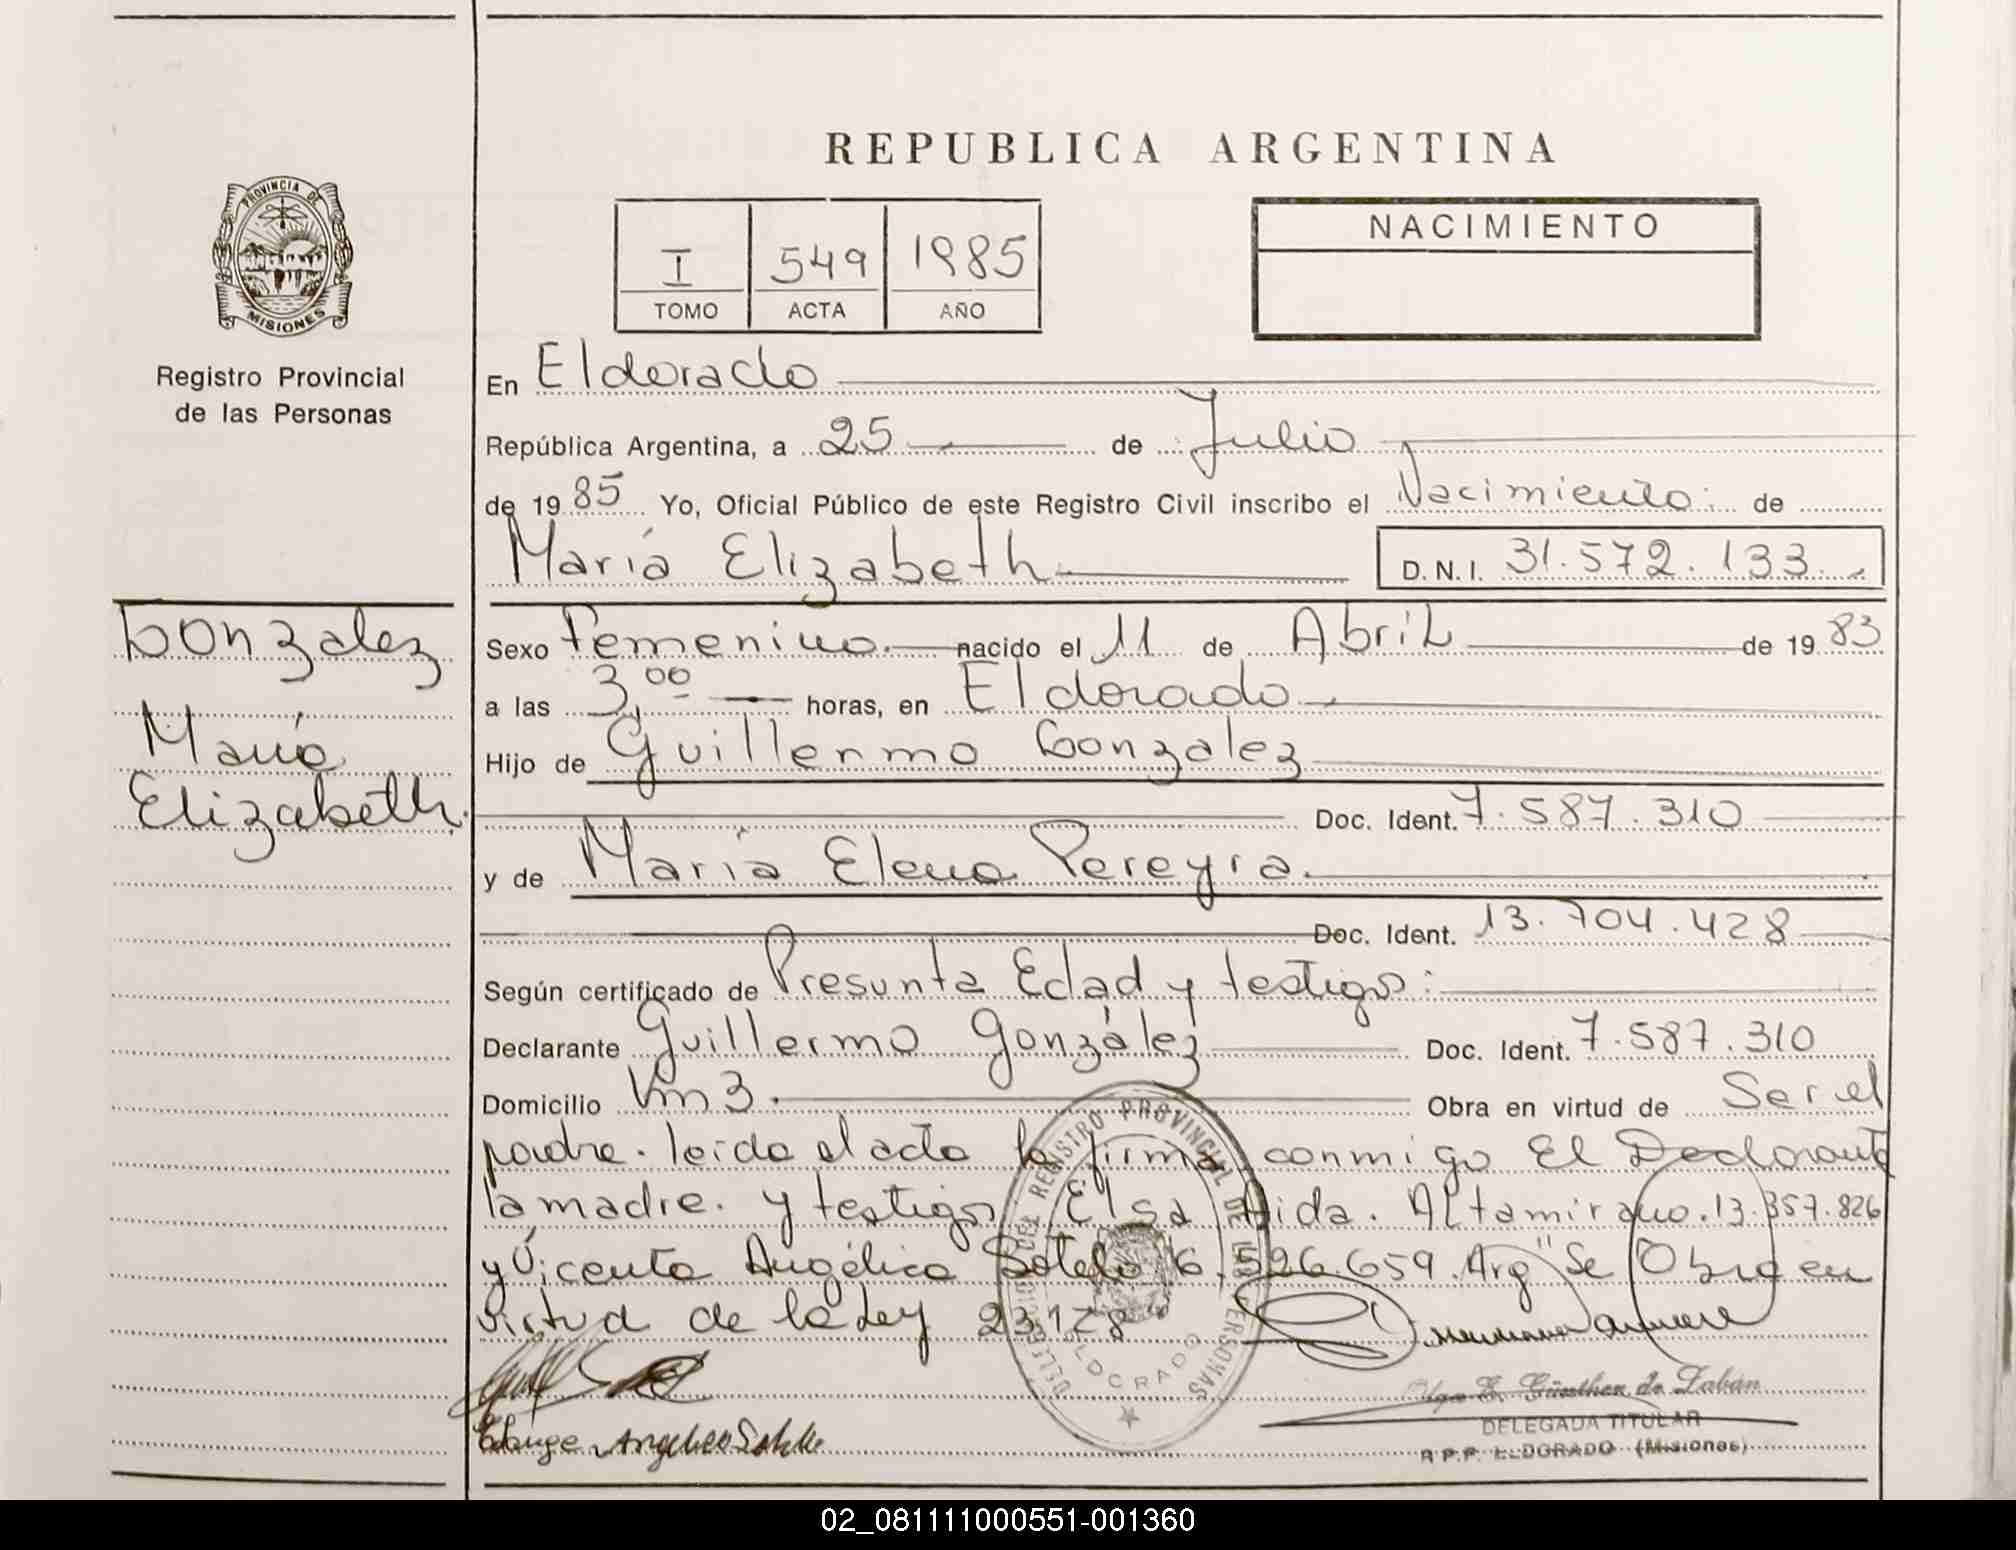 REPUBLICA ARGENTINA
PROVINCIA DE
MISIONES
Registro Provincial
de las Personas
I 549 1985
TOMO ACTA AÑO
NACIMIENTO
En Eldorado
República Argentina, a 25 de Julio
de 1985 Yo, Oficial Público de este Registro Civil inscribo el Nacimiento: de
María Elizabeth D.N.I. 31.572.133.
Gonzalez
María
Elizabeth.
Sexo Femenino. nacido el 11 de Abril de 1983
a las 3,00 horas, en Eldorado
Hijo de Guillermo Gonzalez
Doc. Ident. 7.587.310
y de María Elena Pereyra.
Doc. Ident. 13.704.428
Según certificado de Presunta Edad y testigos:
Declarante Guillermo González Doc. Ident. 7.587.310
Domicilio Km 3. Obra en virtud de Ser el
padre. leida el acta la firma conmigo El Declarante
la madre. y testigos Elsa Aida. Altamirano. 13.357.826
y Vicenta Angélica Sotelo 6.526.659. Arg "Se Obra en
virtud de la Ley 23178"
DELEGACION DEL REGISTRO PROVINCIAL DE LAS PERSONAS
ELDORADO
Olga E. Günther de Zabán
DELEGADA TITULAR
R.P.P. ELDORADO (Misiones)
02_081111000551-001360